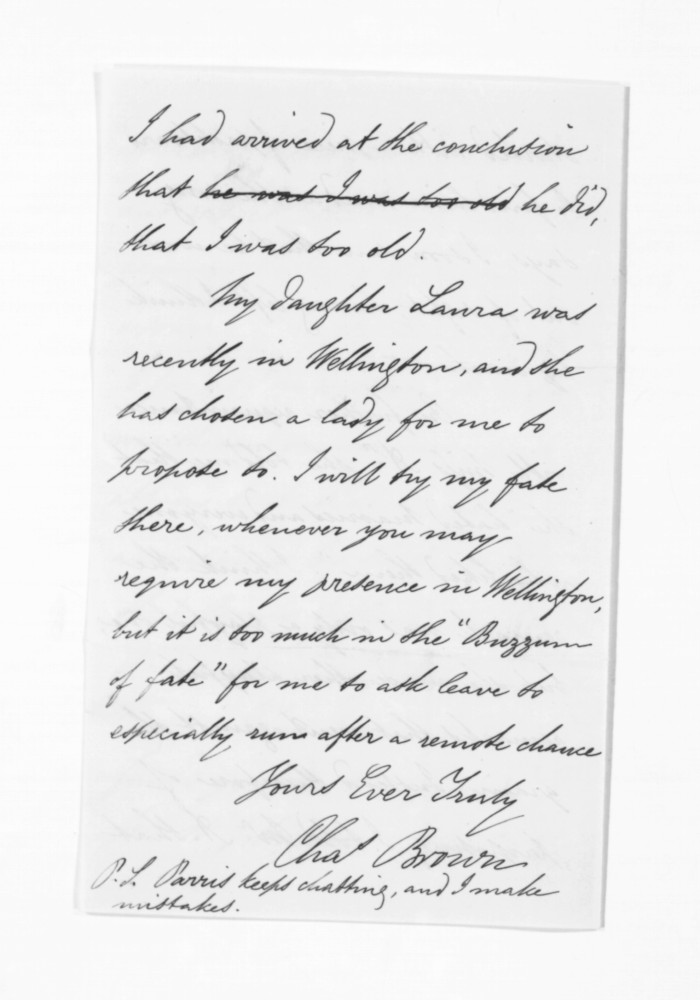 I had arrived at the conclusion
that ~~he was I was too old~~ he did,
that I was too old.
My daughter Laura was
recently in Wellington, and she
has chosen a lady for me to
propose to. I will try my fate
there, whenever you may
require my presence in Wellington,
but it is too much in the "Buzzum
of fate" for me to ask leave to
especially run after a remote chance
Yours Ever Truly
Chas Brown
P.S. Parris keeps chatting, and I make
mistakes.